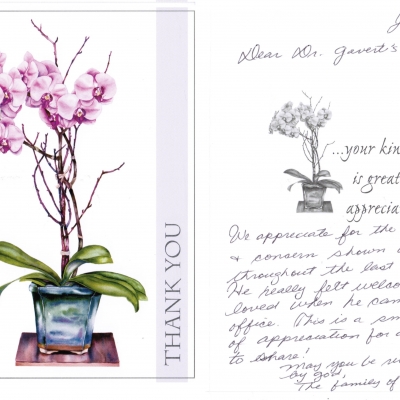 THANK YOU
Dear Dr. Gavert's
...your kin
is great
apprecia
We appreciate for the
& concern shown
throughout the last
He really felt welco
loved when he cam
office. This is a sm
of appreciation for
to share!
May you be re
by god,
The family of